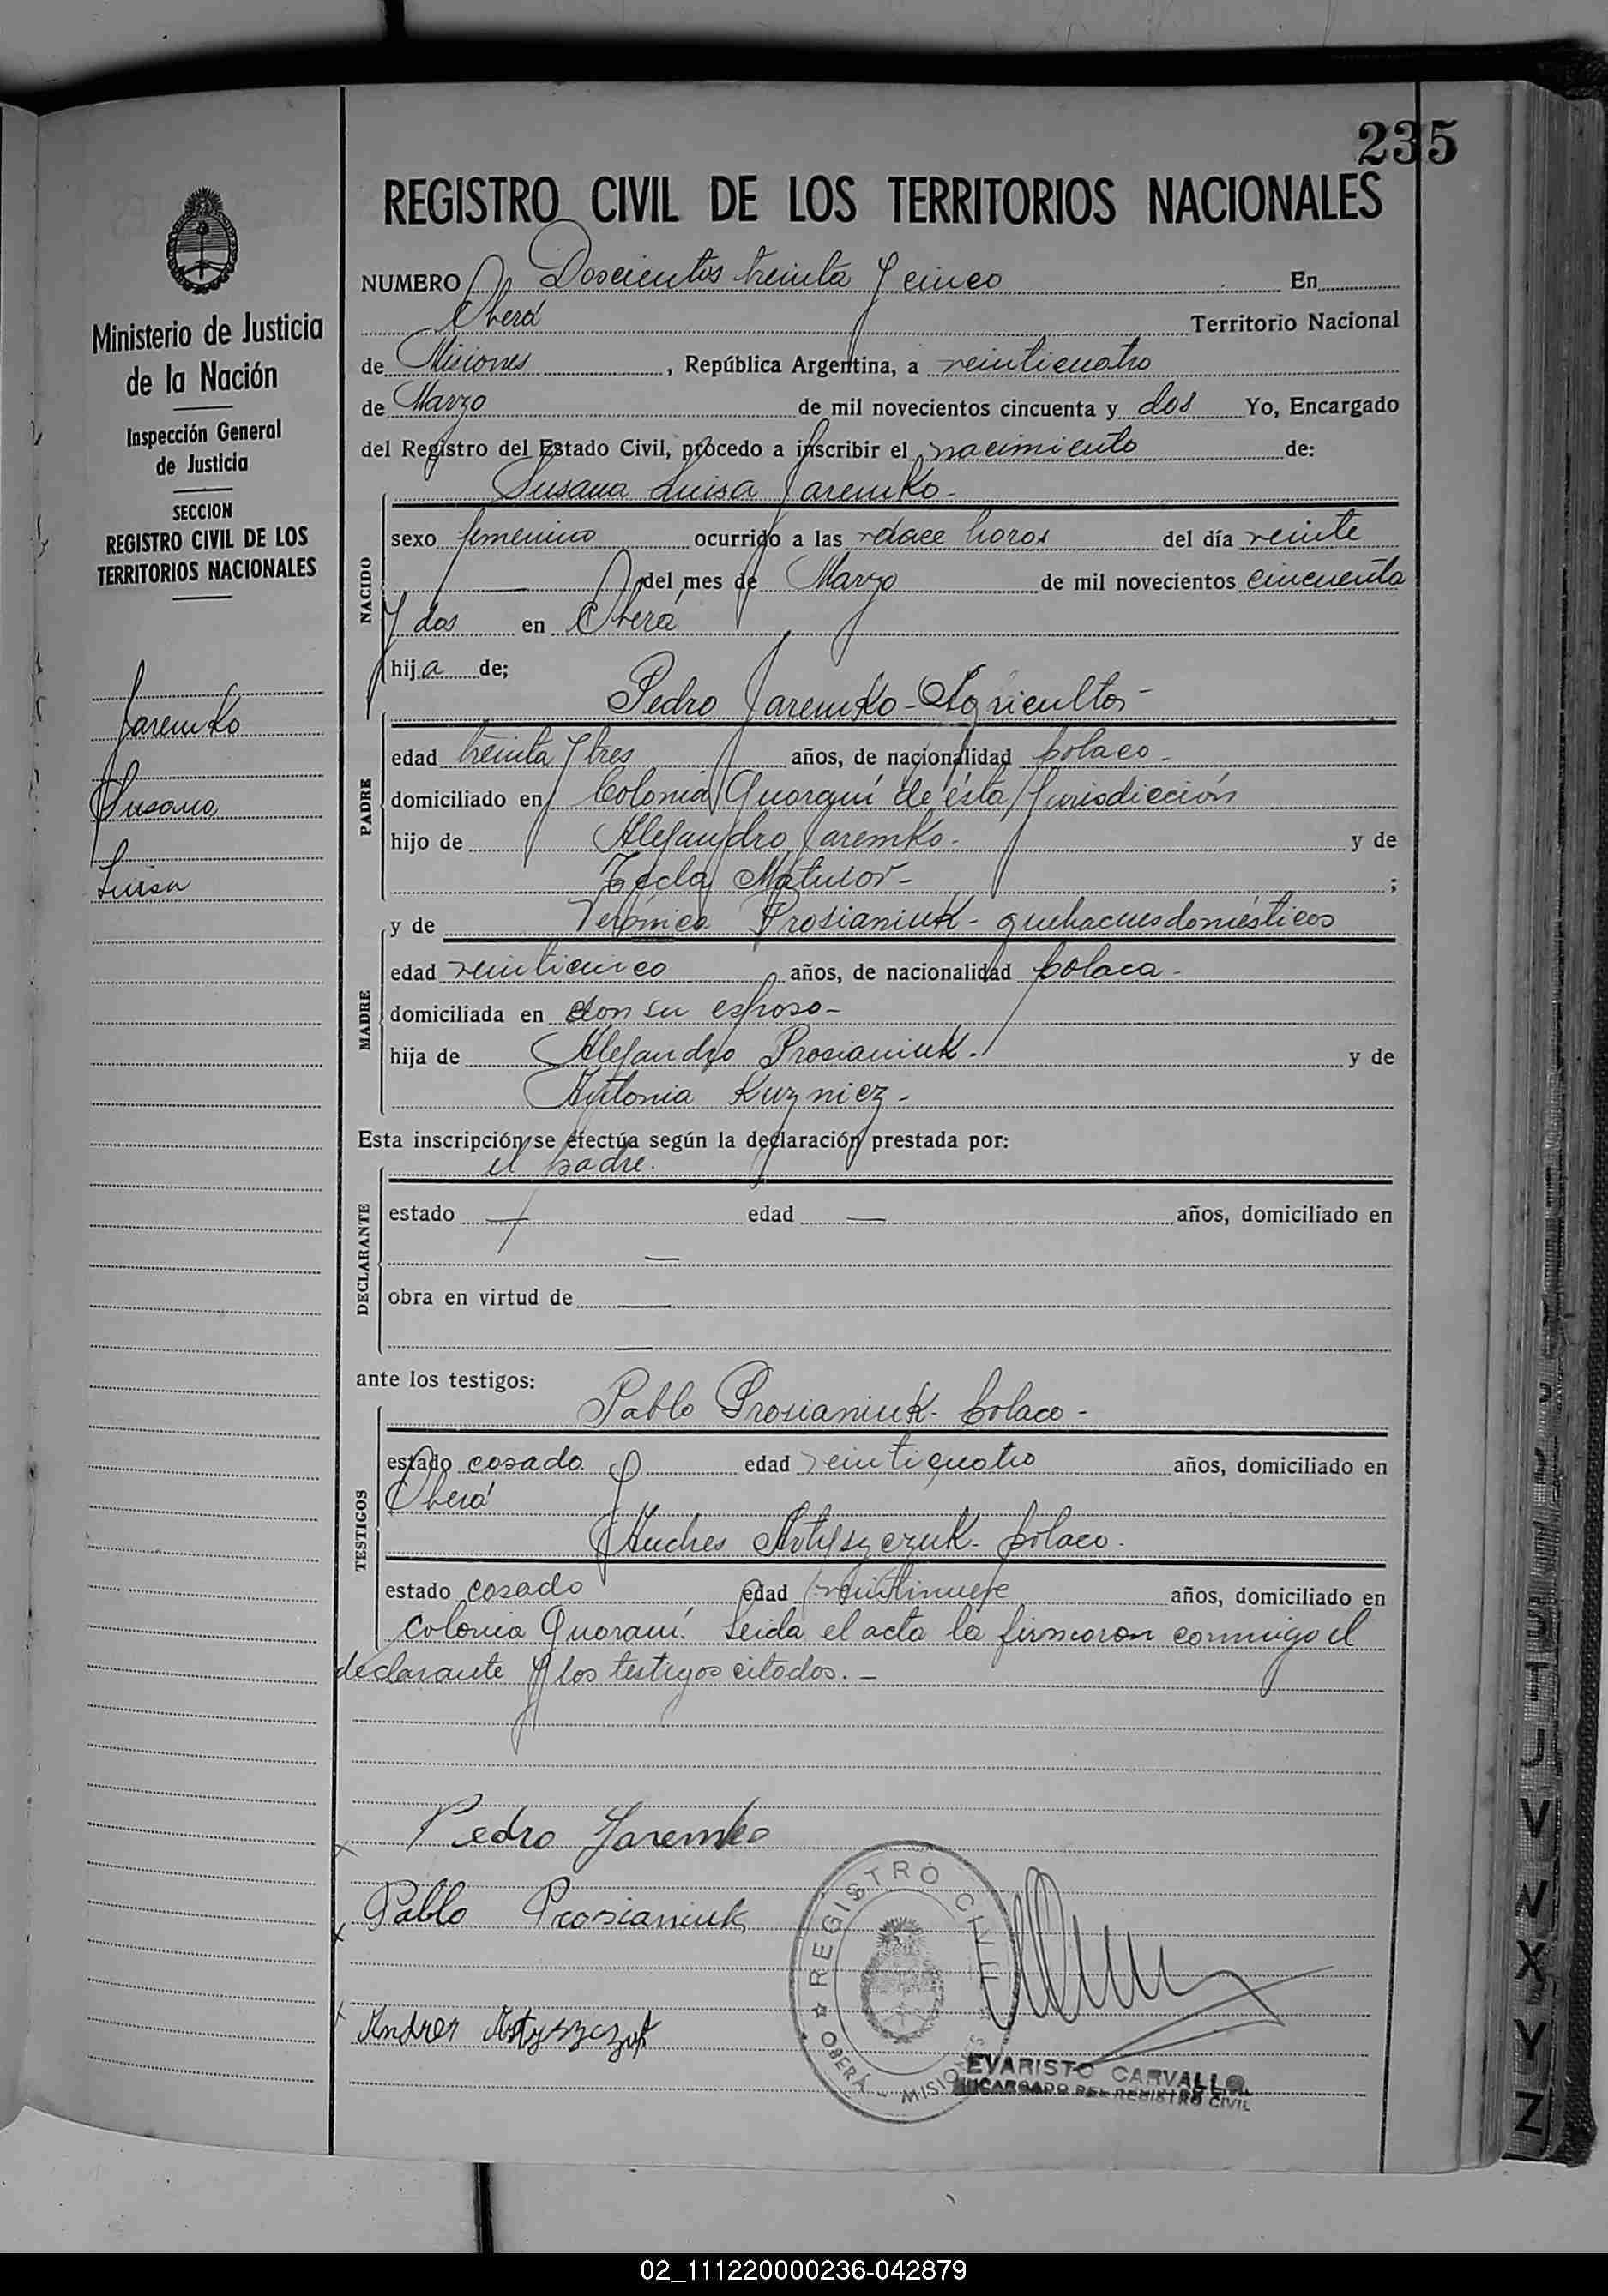 235
REGISTRO CIVIL DE LOS TERRITORIOS NACIONALES
Ministerio de Justicia
de la Nación
Inspección General
de Justicia
SECCION
REGISTRO CIVIL DE LOS
TERRITORIOS NACIONALES
Jaremko
Susana
Luisa
NUMERO Doscientos treinta y cinco En
Oberá Territorio Nacional
de Misiones, República Argentina, a veinticuatro
de Marzo de mil novecientos cincuenta y dos Yo, Encargado
del Registro del Estado Civil, procedo a inscribir el nacimiento de:
Susana Luisa Jaremko-
NACIDO
sexo femenino ocurrido a las doce horas del día veinte
— del mes de Marzo de mil novecientos cincuenta
y dos en Oberá
hija de;
Pedro Jaremko-Agricultor-
PADRE
edad treinta y tres años, de nacionalidad polaco-
domiciliado en Colonia Guaraní de ésta Jurisdicción
hijo de Alejandro Jaremko- y de
Tecla Matusor- ;
y de Verónica Prosianiuk- quehaceres domésticos
MADRE
edad veinticinco años, de nacionalidad polaca-
domiciliada en con su esposo-
hija de Alejandro Prosianiuk- y de
Antonia Kuzniez-
Esta inscripción se efectúa según la declaración prestada por:
el padre.
DECLARANTE
estado — edad — años, domiciliado en
—
obra en virtud de —
—
ante los testigos:
Pablo Prosianiuk- polaco-
TESTIGOS
estado casado edad veinticuatro años, domiciliado en
Oberá
Andres Artyszczuk- polaco-
estado casado edad veintinueve años, domiciliado en
Colonia Guaraní. Leida el acta la firmaron conmigo el
declarante y los testigos citados.-
Pedro Jaremko
Pablo Prosianiuk
Andres Artyszczuk
REGISTRO CIVIL
OBERÁ - MISIONES
EVARISTO CARVALLO
ENCARGADO DEL REGISTRO CIVIL
U
V
W
X
Y
Z
02_111220000236-042879